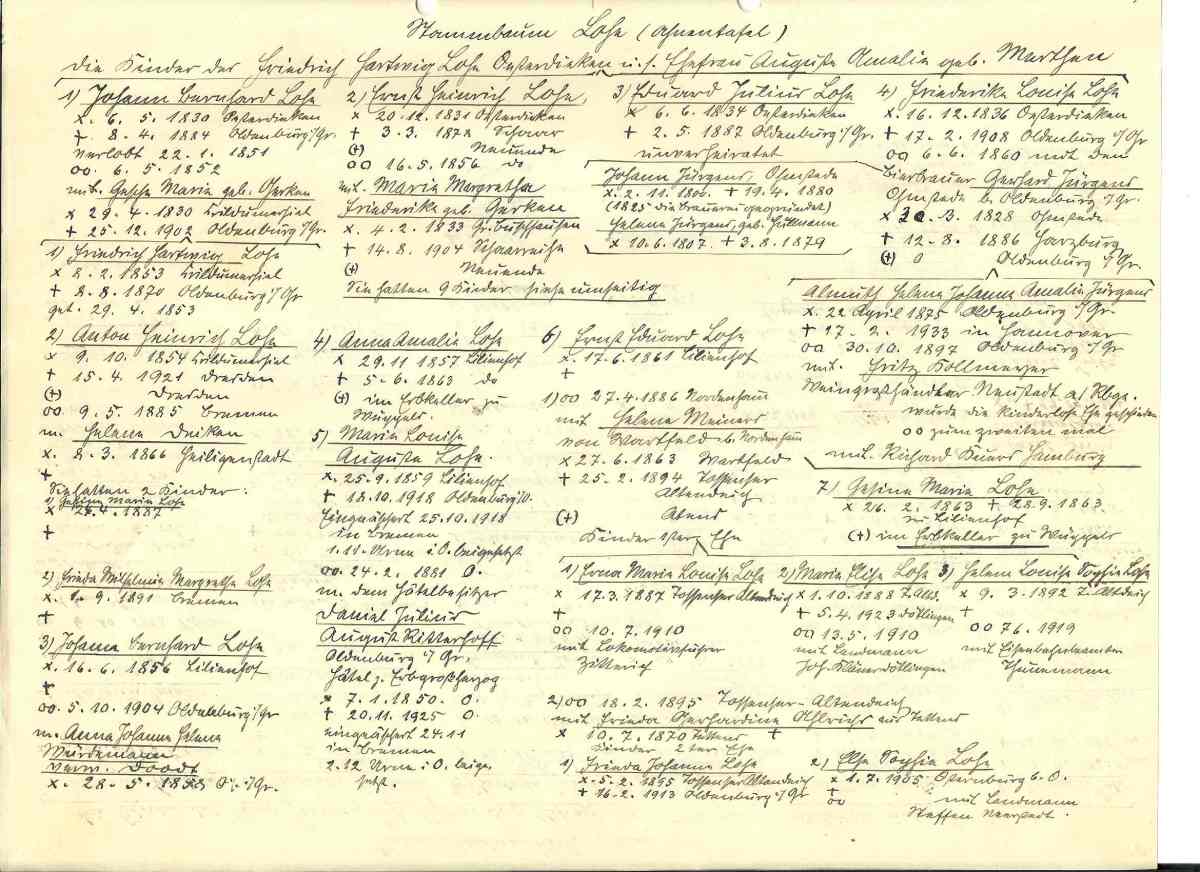 Stammbaum Lohse (Ahnentafel)
Die Kinder der Friedrich Hartwig Lohse Oesterdieken u. s. Ehefrau Auguste Amalie geb. Merthen
1) Johann Bernhard Lohse
x. 6. 5. 1830 Oesterdieken
+ 8. 4. 1884 Oldenburg i/Gr.
verlobt 22. 1. 1851
oo 6. 5. 1852
mit. Gesche Maria geb. Gerken
x 29. 4. 1830 Hildumersiel
+ 25. 12. 1902 Oldenburg i/Gr.
1) Friedrich Hartwig Lohse
x 2. 2. 1853 Hildumersiel
+ 8. 8. 1870 Oldenburg i/Gr
get. 29. 4. 1853
2) Anton Heinrich Lohse
x 9. 10. 1854 Hildumersiel
+ 15. 4. 1921 Dresden
(+) Dresden
oo 9. 5. 1885 Bremen
m. Helene Deiken
x 8. 3. 1866 Heiligenstadt
+
Sie hatten 2 Kinder:
1) Gesine Maria Lohse
x 4. 1887
+
2) Frieda Wilhelmine Margrethe Lohse
x. 1. 9. 1891 Bremen
+
3) Johann Bernhard Lohse
x. 16. 6. 1856 Lilienhof
+
oo. 5. 10. 1904 Oldenburg i/Gr
m. Anna Johanne Helene
Würdemann
verw. Doodt
x. 28. 5. O. i/Gr.
2) Ernst Heinrich Lohse,
x 20. 12. 1831 Oesterdieken
+ 3. 3. 1878 Schaar
(+) Neuende
oo 16. 5. 1856 do
mit. Maria Margretha
Friederike geb. Gerken
x. 4. 2. 1833 Gr. Buschhausen
+ 14. 8. 1904 Schaarreihe
(+) Neuende
Sie hatten 9 Kinder siehe umseitig
3) Eduard Julius Lohse
x 6. 6. 1834 Oesterdieken
+ 2. 5. 1887 Oldenburg i/Gr
unverheiratet
Johann Jürgens, Ohmstede
x. 2. 11. 1800. + 19. 4. 1880
(1825 die Brauerei gegründet)
Helene Jürgens, geb. Hullmann
x 10. 6. 1807. + 3. 8. 1879
4) Friederike Louise Lohse
x. 16. 12. 1836 Oesterdieken
+ 17. 2. 1908 Oldenburg i/Gr
oo 6. 6. 1860 mit dem
Bierbrauer Gerhard Jürgens
Ohmstede b. Oldenburg i/Gr.
x 3. 1828 Ohmstede
+ 12. 8. 1886 Harzburg
(+) Oldenburg i/Gr.
Almuth Helene Johanne Amalie Jürgens
x. 22 April 1875 Oldenburg i/Gr.
+ 17. 2. 1933 in Hannover
oo 30. 10. 1897 Oldenburg i/Gr
mit. Fritz Kollmeyer
Weingroßhändler Neustadt a/ Rbge.
wurde die kinderlose Ehe geschieden
oo zum zweiten mal
mit. Richard Hamburg
4) Anna Amalie Lohse
x 29. 11 1857 Lilienhof
+ 5. 6. 1863 do
(+) im Erbkeller zu
Wüppels.
5) Maria Louise
Auguste Lohse.
x. 25. 9. 1859 Lilienhof
+ 18. 10. 1918 Oldenburg i/O.
Eingeäschert 25. 10. 1918
in Bremen
1. 11. Urne i. O. beigesetzt
oo. 24. 2. 1881 O.
m. dem Hôtelbesitzer
Daniel Julius
August Ritterhoff
Oldenburg i/ Gr.
Hôtel z. Erbgroßherzog
x 7. 1. 1850. O.
+ 20. 11. 1925 O.
eingeäschert 24. 11
in Bremen
2. 12 Urne i. O. beige-
setzt.
6) Ernst Eduard Lohse
x. 17. 6. 1861 Lilienhof
+
1) oo 27. 4. 1886 Nordenham
mit Helene Meiners
von Wartfeld b. Nordenham
x 27. 6. 1863 Wartfeld
+ 25. 2. 1894 Tossenser
Altendeich
(+) Atens
Kinder 1ster Ehe
7) Gesine Maria Lohse
x 26. 2. 1863 + 28. 9. 1863
zu Lilienhof
(+) im Erbkeller zu Wüppels
1) Erna Maria Louise Lohse
x 17. 3. 1887 Tossenser Altendeich
+
oo 10. 7. 1910
mit Lokomotivführer
Zitterich
2) Maria Elise Lohse
x 1. 10. 1888 T. Altd.
+ 5. 4. 1923 Dötlingen
oo 13. 5. 1910
mit Landmann
Joh. Klüner Dötlingen
3) Helene Louise Sophie Lohse
x 9. 3. 1892 T. Altdeich
+
oo 7 6. 1919
mit Eisenbahnbeamten
Thünemann
2) oo 18. 2. 1895 Tossenser-Altendeich
mit Frieda Gerhardine Ahlrichs aus Tettens
x 10. 7. 1870 Tettens +
Kinder 2ter Ehe
1) Frieda Johanne Lohse
x. 5. 2. 1895 Tossenser Altendeich
+ 16. 2. 1913 Oldenburg i/Gr
2) Else Sophie Lohse
x 1. 7. 1905 Osternburg b. O.
+
oo mit Landmann
Steffen